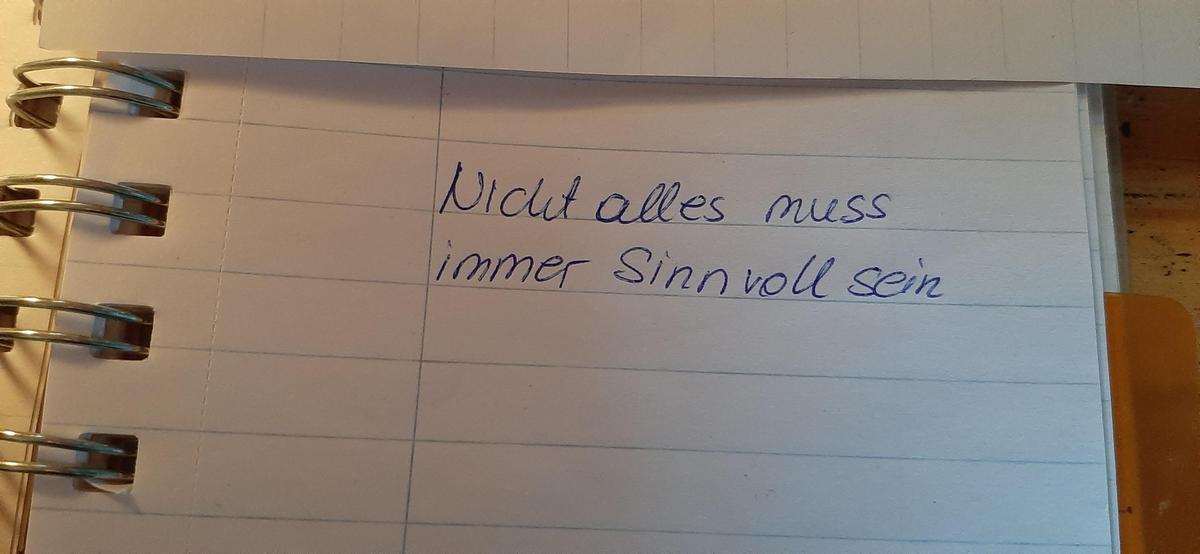 Nicht alles muss
immer Sinnvoll sein